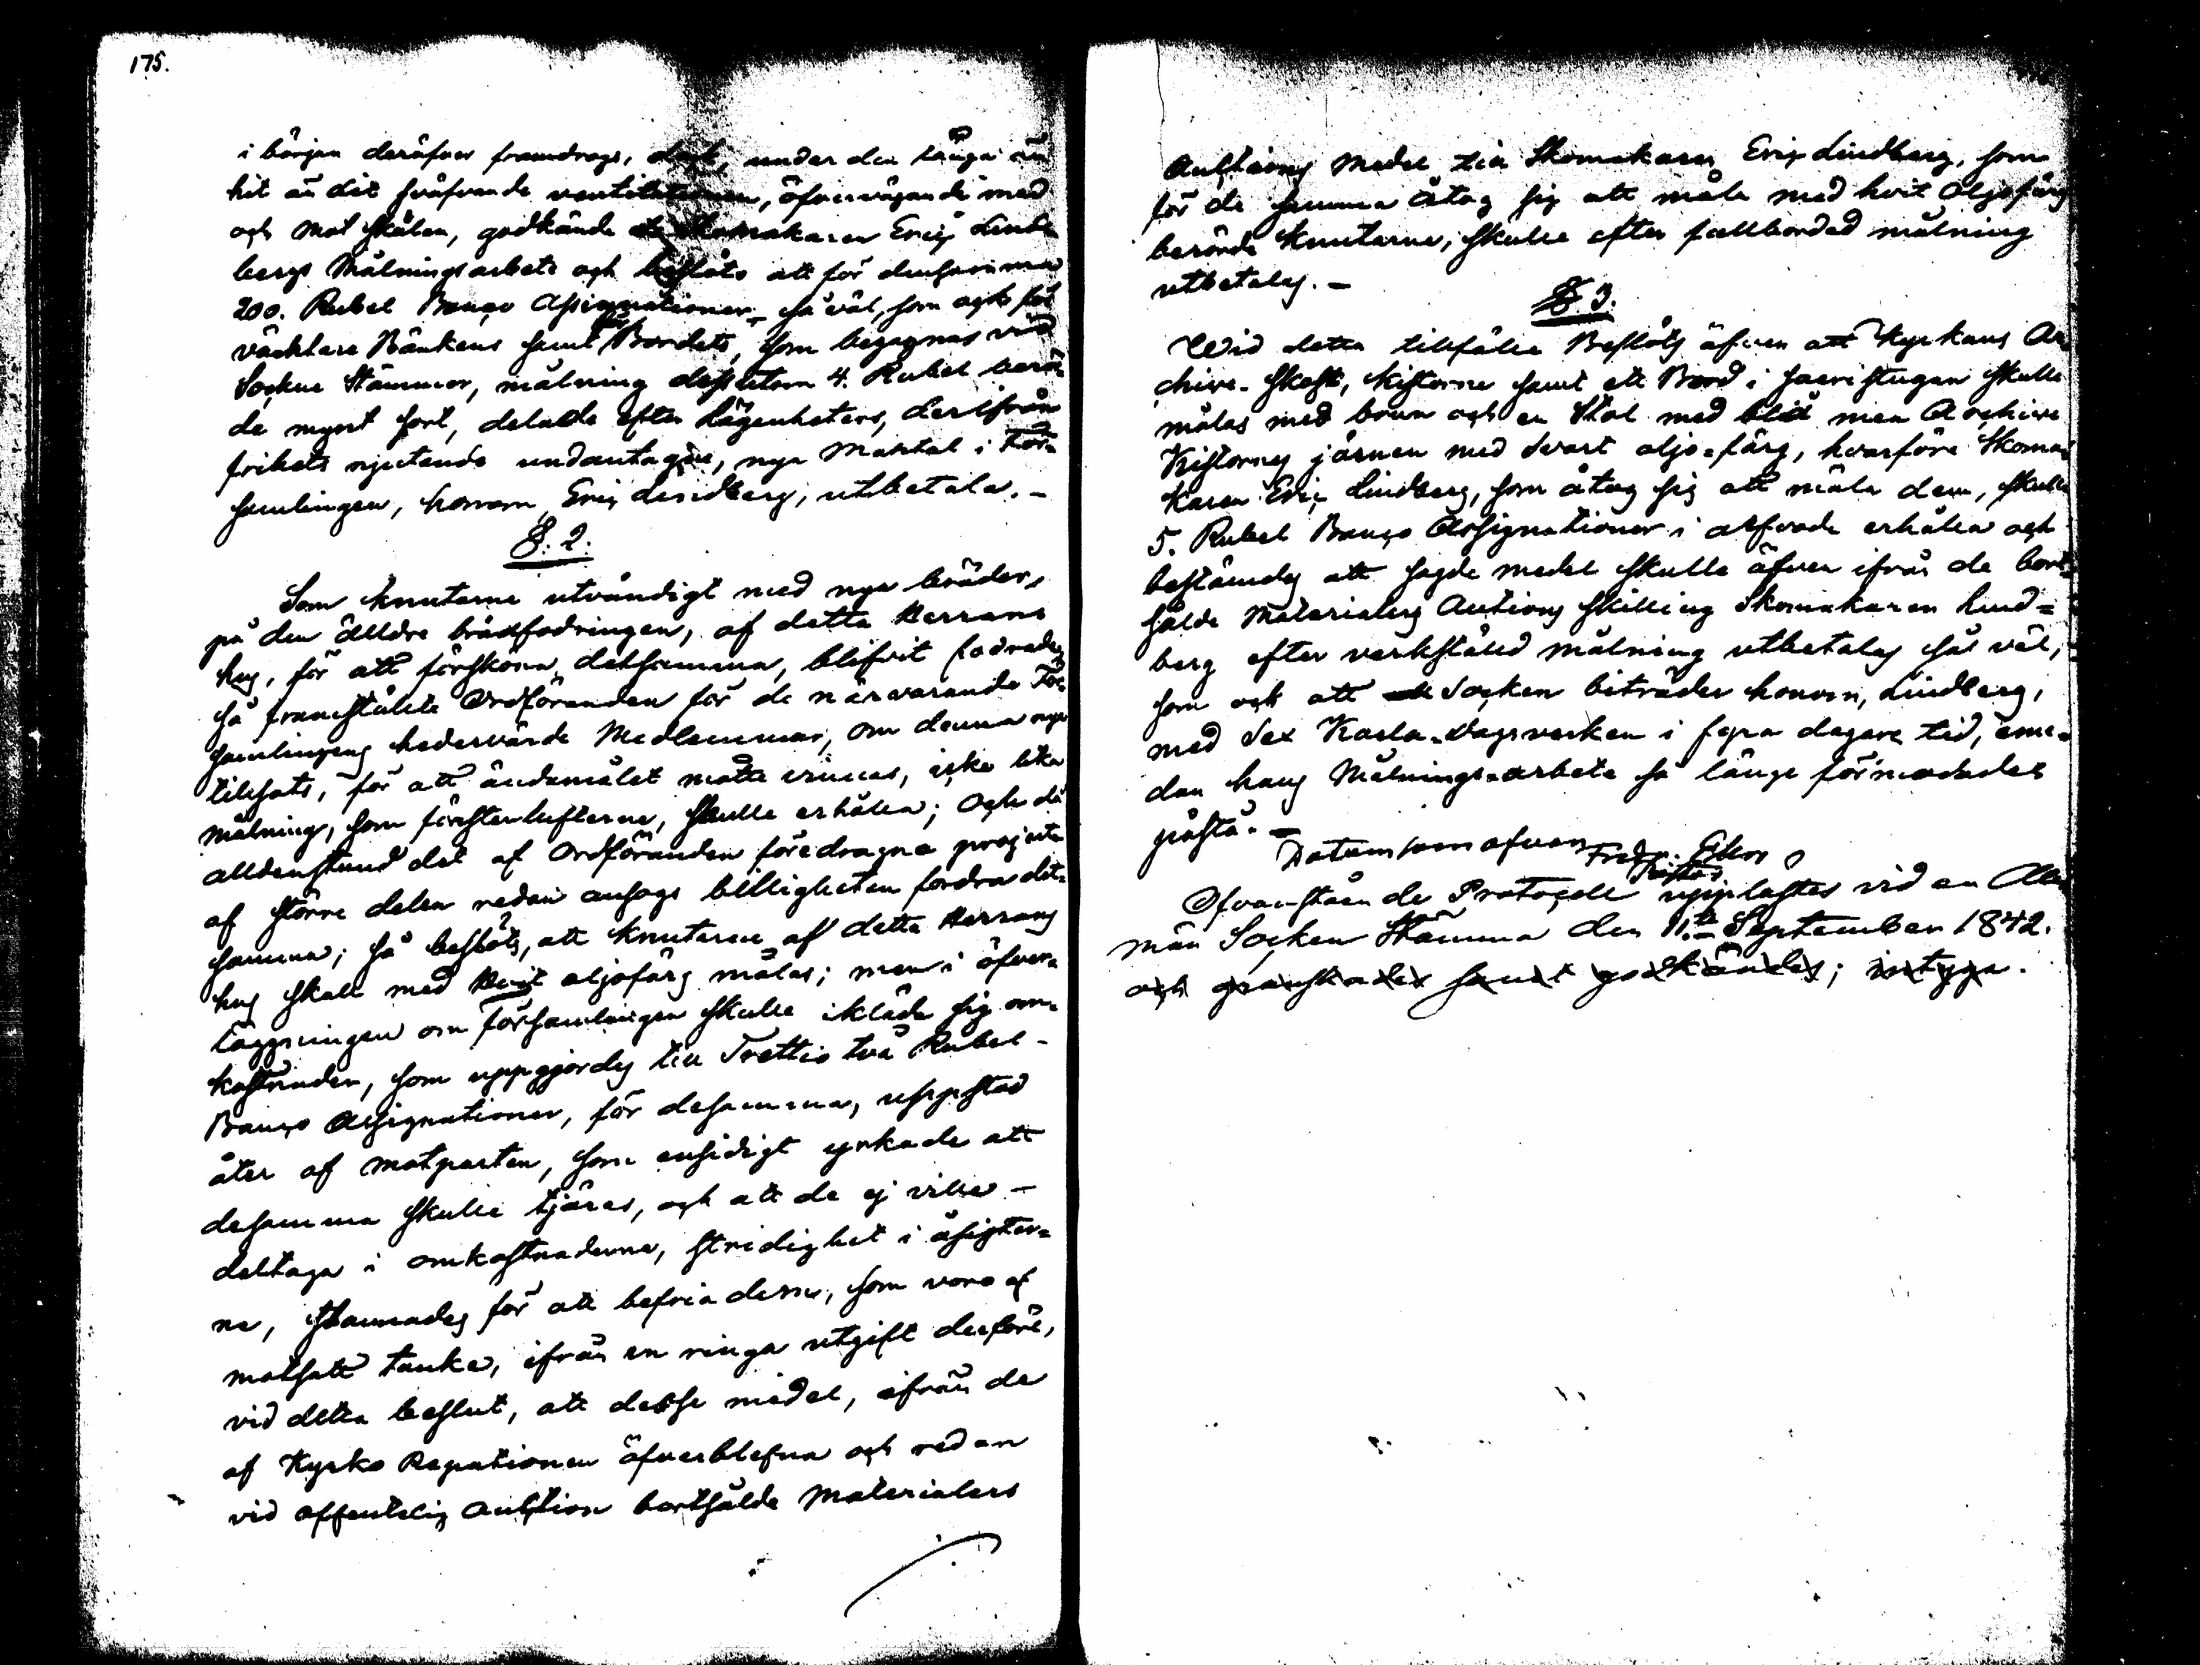 175.
i början deröfver framdrogs, dock, under den långa än
hit än dit sväfvande ventilationen, öfvervägande med
och mot skälen, godkände Skomakaren Eric Lind-
bergs Målningsarbete och beslöts att för densamma
200. Rubel Banco Assignationer, så väl, som och för
väcktare Bänkens samt Bordets, som begagnas vid
Socknestämmor, målning dessutom 4. Rubel
de mynt sort, delade efter Lägenheters, derifrån
frihets njutande undantagne, nya Mantal i För-
samlingen, honom, Eric Lindberg, utbetala. -
§. 2.
Som knutarne utvändigt med nya bräder,
på den älldre brädfodringen, af detta Herrans
hus, för att försköna detsamma, blifvit fodrade,
så framstälte Ordföranden för de närvarande För-
samlingens hedervärde Medlemmar, om denna nya
tillsats, för att ändamålet måtte vinnas, icke lika
målning, som fönsterlufterne, skulle erhålla; Och då
alldenstund det af Ordföranden föredragne projecte
af större delen redan ansags billigheten fordra det-
samma; så beslöts, att knutarne af detta Herrans
hus skall med hvit oljofärg målas; men i öfver-
läggningen om Församlingen skulle ikläda sig om-
kostnaden, som uppgjordes till Trettio två Rubel -
Banco Assignationer, för desamma, uppstod
åter af motparten, som ensidigt yrkade att
desamma skulle tjäras, och att de ej ville -
deltaga i omkostnaderna, stridighet i åsigter-
ne, stannades för att befria dem, som voro af
motsatt tanke, ifrån en ringa utgift derföre,
vid detta beslut, att desse medel, ifrån de
af Kyrko Reparationen öfverblefna och redan
vid offentelig auktion bortsålde Materialers
Auktions medel till Skomakaren Eric Lindberg, som
för de samma åtog sig att måla med hvit Oljofärg
berörde Knutarne, skulle efter fullbordad målning
utbetalas. -
§ 3.
Wid detta tillfälle Beslöts äfven att Kyrkans Ar-
chive-skåp, kistorne samt ett Bord i sacristugan skulle
målas med brun och en Stol med blå men Archive
Kistornes järnen med Svart oljo-färg, hvarföre Skoma-
karen Eric Lindberg, som åtog sig att måla dem, skulle
5. Rubel Banco Assignationer i arfvode erhålla och
bestämdes att sagde medel skulle äfven ifrån de bort-
sålde Materialers Auctions skilling Skomakaren Lind=
berg efter verkstäld målning utbetalas så väl,
som ock att Socken biträder honom, Lindberg,
med Sex Karla-dagsverken i fyra dagars tid, eme-
dan hans Målnings-arbete så länge förmodades
påstå. -
Datum som ofvan Fredr. Ehrs
Ofvanstående Protocoll upplästes vid en All-
män Socken Stämma den 11.te September 1842.
och granskades samt godkändes; intyga.